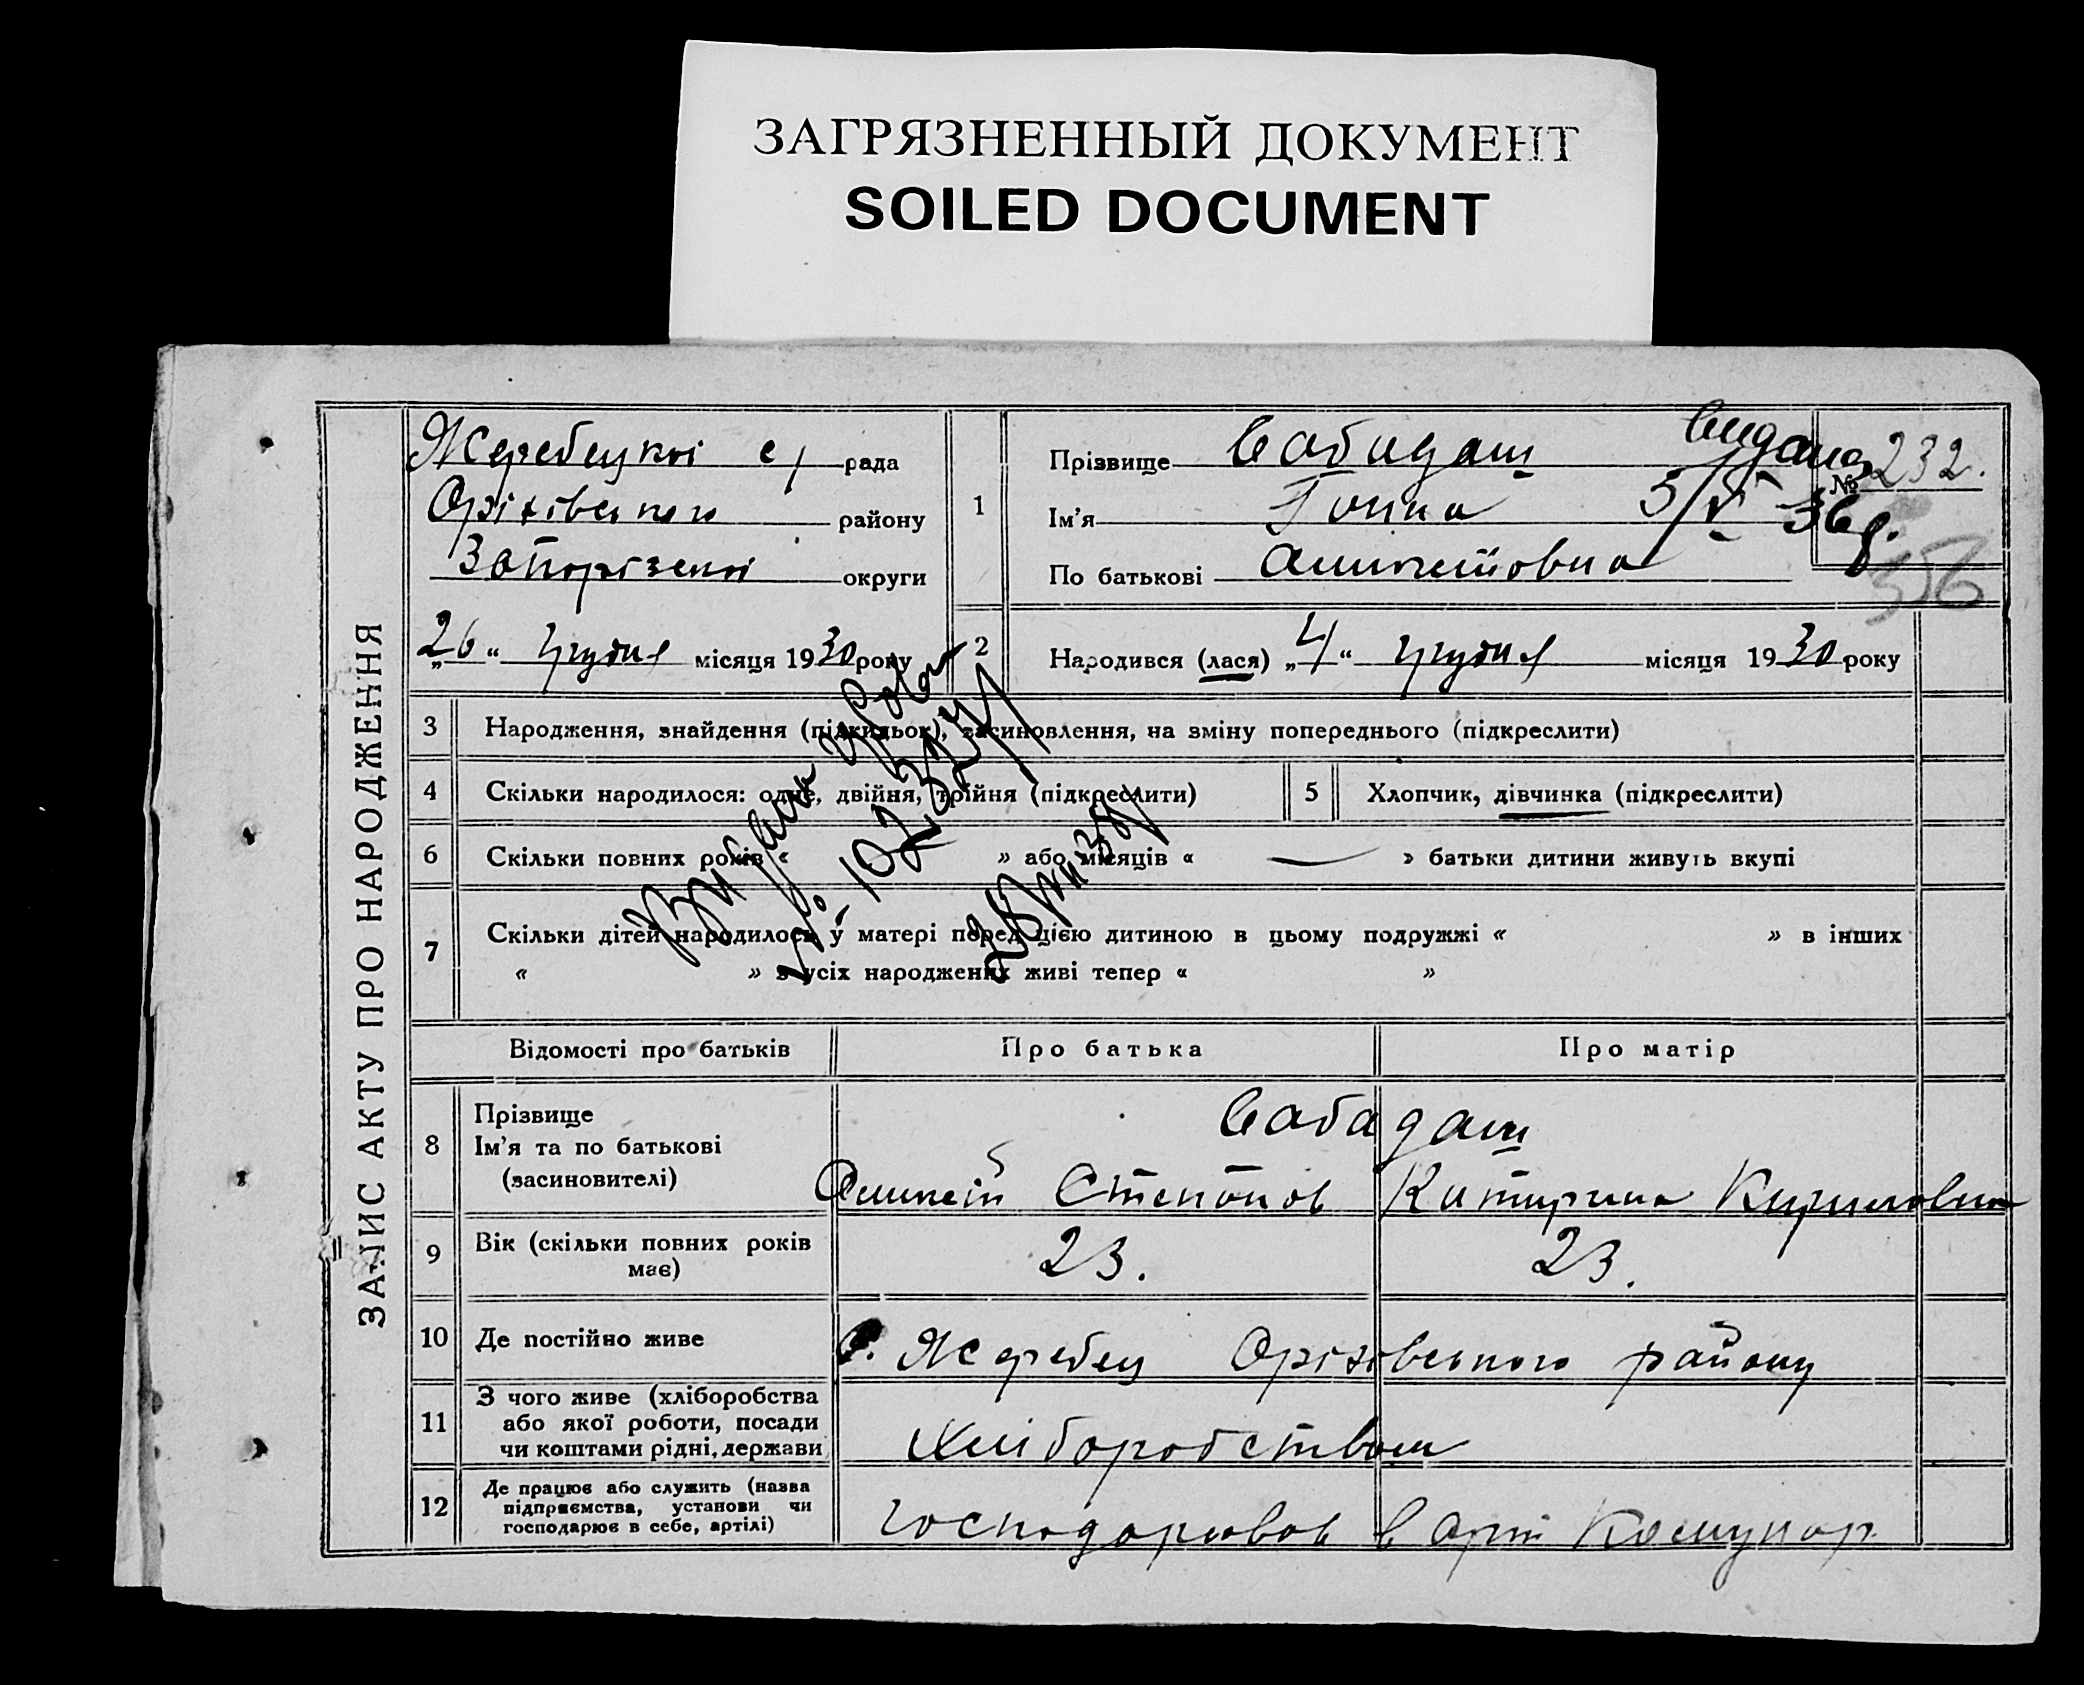 ЗАГРЯЗНЕННЫЙ ДОКУМЕНТ
SOILED DOCUMENT
ЗАПИС АКТУ ПРО НАРОДЖЕННЯ
Жеребецкої с/ рада
Оріхівського району
Запорізької округи
„26“ грудня місяця 1930 року
1
Прізвище Сабадаш
Ім'я
По батькові
видана
№ 232.
5/V 36 р.
356
2 Народився (лася) „4“ грудня місяця 1930 року
3 Народження, знайдення (підкидьок), засиновлення, на зміну попереднього (підкреслити)
4 Скільки народилося: одне, двійня, трійня (підкреслити)
5 Хлопчик, дівчинка (підкреслити)
6 Скільки повних років « » або місяців « — » батьки дитини живуть вкупі
7 Скільки дітей народилося у матері перед цією дитиною в цьому подружжі « » в інших
« » з усіх народжених живі тепер « »
Відомості про батьків Про батька Про матір
8 Прізвище
Ім'я та по батькові
(засиновителі)
Сабадаш
Степанов Катерина Кириловна
9 Вік (скільки повних років
має)
23. 23.
10 Де постійно живе
с. Жеребец Оріхівського району
11 З чого живе (хліборобства
або якої роботи, посади
чи коштами рідні, держави
Хліборобством
12 Де працює або служить (назва
підприємства, установи чи
господарює в себе, артілі)
господарював в арт Комунар